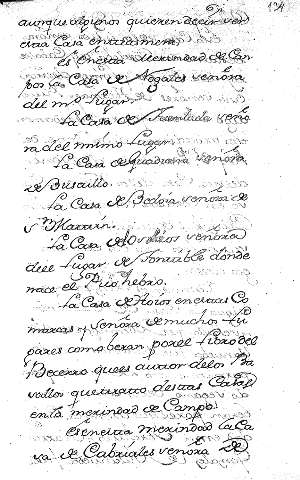 134
aunque algunos quieren decir ser
otra Casa enteramente
es en esta Merindad de Cam
poo la Casa de Nogales señora
del mº Lugar.
La Casa de Fuentada seño
ra del mismo Lugar
La Casa de quadrana señora
de Bustillo.
La Casa de señora de
Sn Martin.
La Casa de señora
de el Lugar de Fontible donde
nace el Rio hebro.
La Casa de Hoios en estas Co
marcas y señora de muchos Lu
gares como beran por el libro del
Becerro que es autor de los Ba
sallos que trato destas Casas
en la merindad de Campo.
Es en esta merindad la Ca
sa de Cabriales señora de